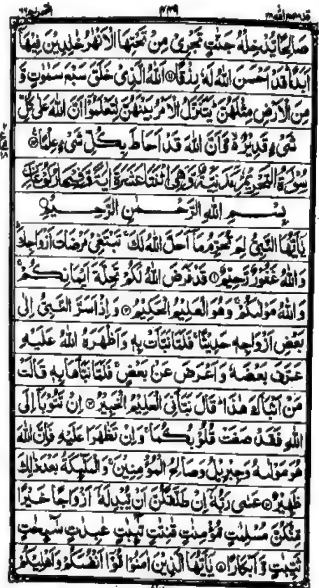 صَالِحًا يُّدْخِلْهُ جَنّٰتٍ تَجْرِيْ مِنْ تَحْتِهَا الْاَنْهٰرُ خٰلِدِيْنَ فِيْهَاۤ
اَبَدًا ؕ قَدْ اَحْسَنَ اللّٰهُ لَهٗ رِزْقًا ۝ اَللّٰهُ الَّذِيْ خَلَقَ سَبْعَ سَمٰوٰتٍ وَّ
مِنَ الْاَرْضِ مِثْلَهُنَّ ؕ يَتَنَزَّلُ الْاَمْرُ بَيْنَهُنَّ لِتَعْلَمُوْۤا اَنَّ اللّٰهَ عَلٰى كُلِّ
شَيْءٍ قَدِيْرٌ ۙ۬ وَّ اَنَّ اللّٰهَ قَدْ اَحَاطَ بِكُلِّ شَيْءٍ عِلْمًا ۝
سُوْرَةُ التَّحْرِيْمِ مَدَنِيَّةٌ وَّهِيَ اثْنَتَا عَشْرَةَ اٰيَةً وَّفِيْهَا رُكُوْعَانِ
بِسْمِ اللّٰهِ الرَّحْمٰنِ الرَّحِيْمِ
يٰۤاَيُّهَا النَّبِيُّ لِمَ تُحَرِّمُ مَاۤ اَحَلَّ اللّٰهُ لَكَ ۚ تَبْتَغِيْ مَرْضَاتَ اَزْوَاجِكَ ؕ
وَاللّٰهُ غَفُوْرٌ رَّحِيْمٌ ۝ قَدْ فَرَضَ اللّٰهُ لَكُمْ تَحِلَّةَ اَيْمَانِكُمْ ۚ
وَاللّٰهُ مَوْلٰىكُمْ ۚ وَهُوَ الْعَلِيْمُ الْحَكِيْمُ ۝ وَاِذْ اَسَرَّ النَّبِيُّ اِلٰى
بَعْضِ اَزْوَاجِهٖ حَدِيْثًا ۚ فَلَمَّا نَبَّاَتْ بِهٖ وَاَظْهَرَهُ اللّٰهُ عَلَيْهِ
عَرَّفَ بَعْضَهٗ وَاَعْرَضَ عَنْۢ بَعْضٍ ۚ فَلَمَّا نَبَّاَهَا بِهٖ قَالَتْ
مَنْ اَنْۢبَاَكَ هٰذَا ؕ قَالَ نَبَّاَنِيَ الْعَلِيْمُ الْخَبِيْرُ ۝ اِنْ تَتُوْبَاۤ اِلَى
اللّٰهِ فَقَدْ صَغَتْ قُلُوْبُكُمَا ۚ وَاِنْ تَظٰهَرَا عَلَيْهِ فَاِنَّ اللّٰهَ
هُوَ مَوْلٰىهُ وَجِبْرِيْلُ وَصَالِحُ الْمُؤْمِنِيْنَ ۚ وَالْمَلٰٓئِكَةُ بَعْدَ ذٰلِكَ
ظَهِيْرٌ ۝ عَسٰى رَبُّهٗۤ اِنْ طَلَّقَكُنَّ اَنْ يُّبْدِلَهٗۤ اَزْوَاجًا خَيْرًا
مِّنْكُنَّ مُسْلِمٰتٍ مُّؤْمِنٰتٍ قٰنِتٰتٍ تٰٓئِبٰتٍ عٰبِدٰتٍ سٰٓئِحٰتٍ
ثَيِّبٰتٍ وَّ اَبْكَارًا ۝ يٰۤاَيُّهَا الَّذِيْنَ اٰمَنُوْا قُوْۤا اَنْفُسَكُمْ وَاَهْلِيْكُمْ